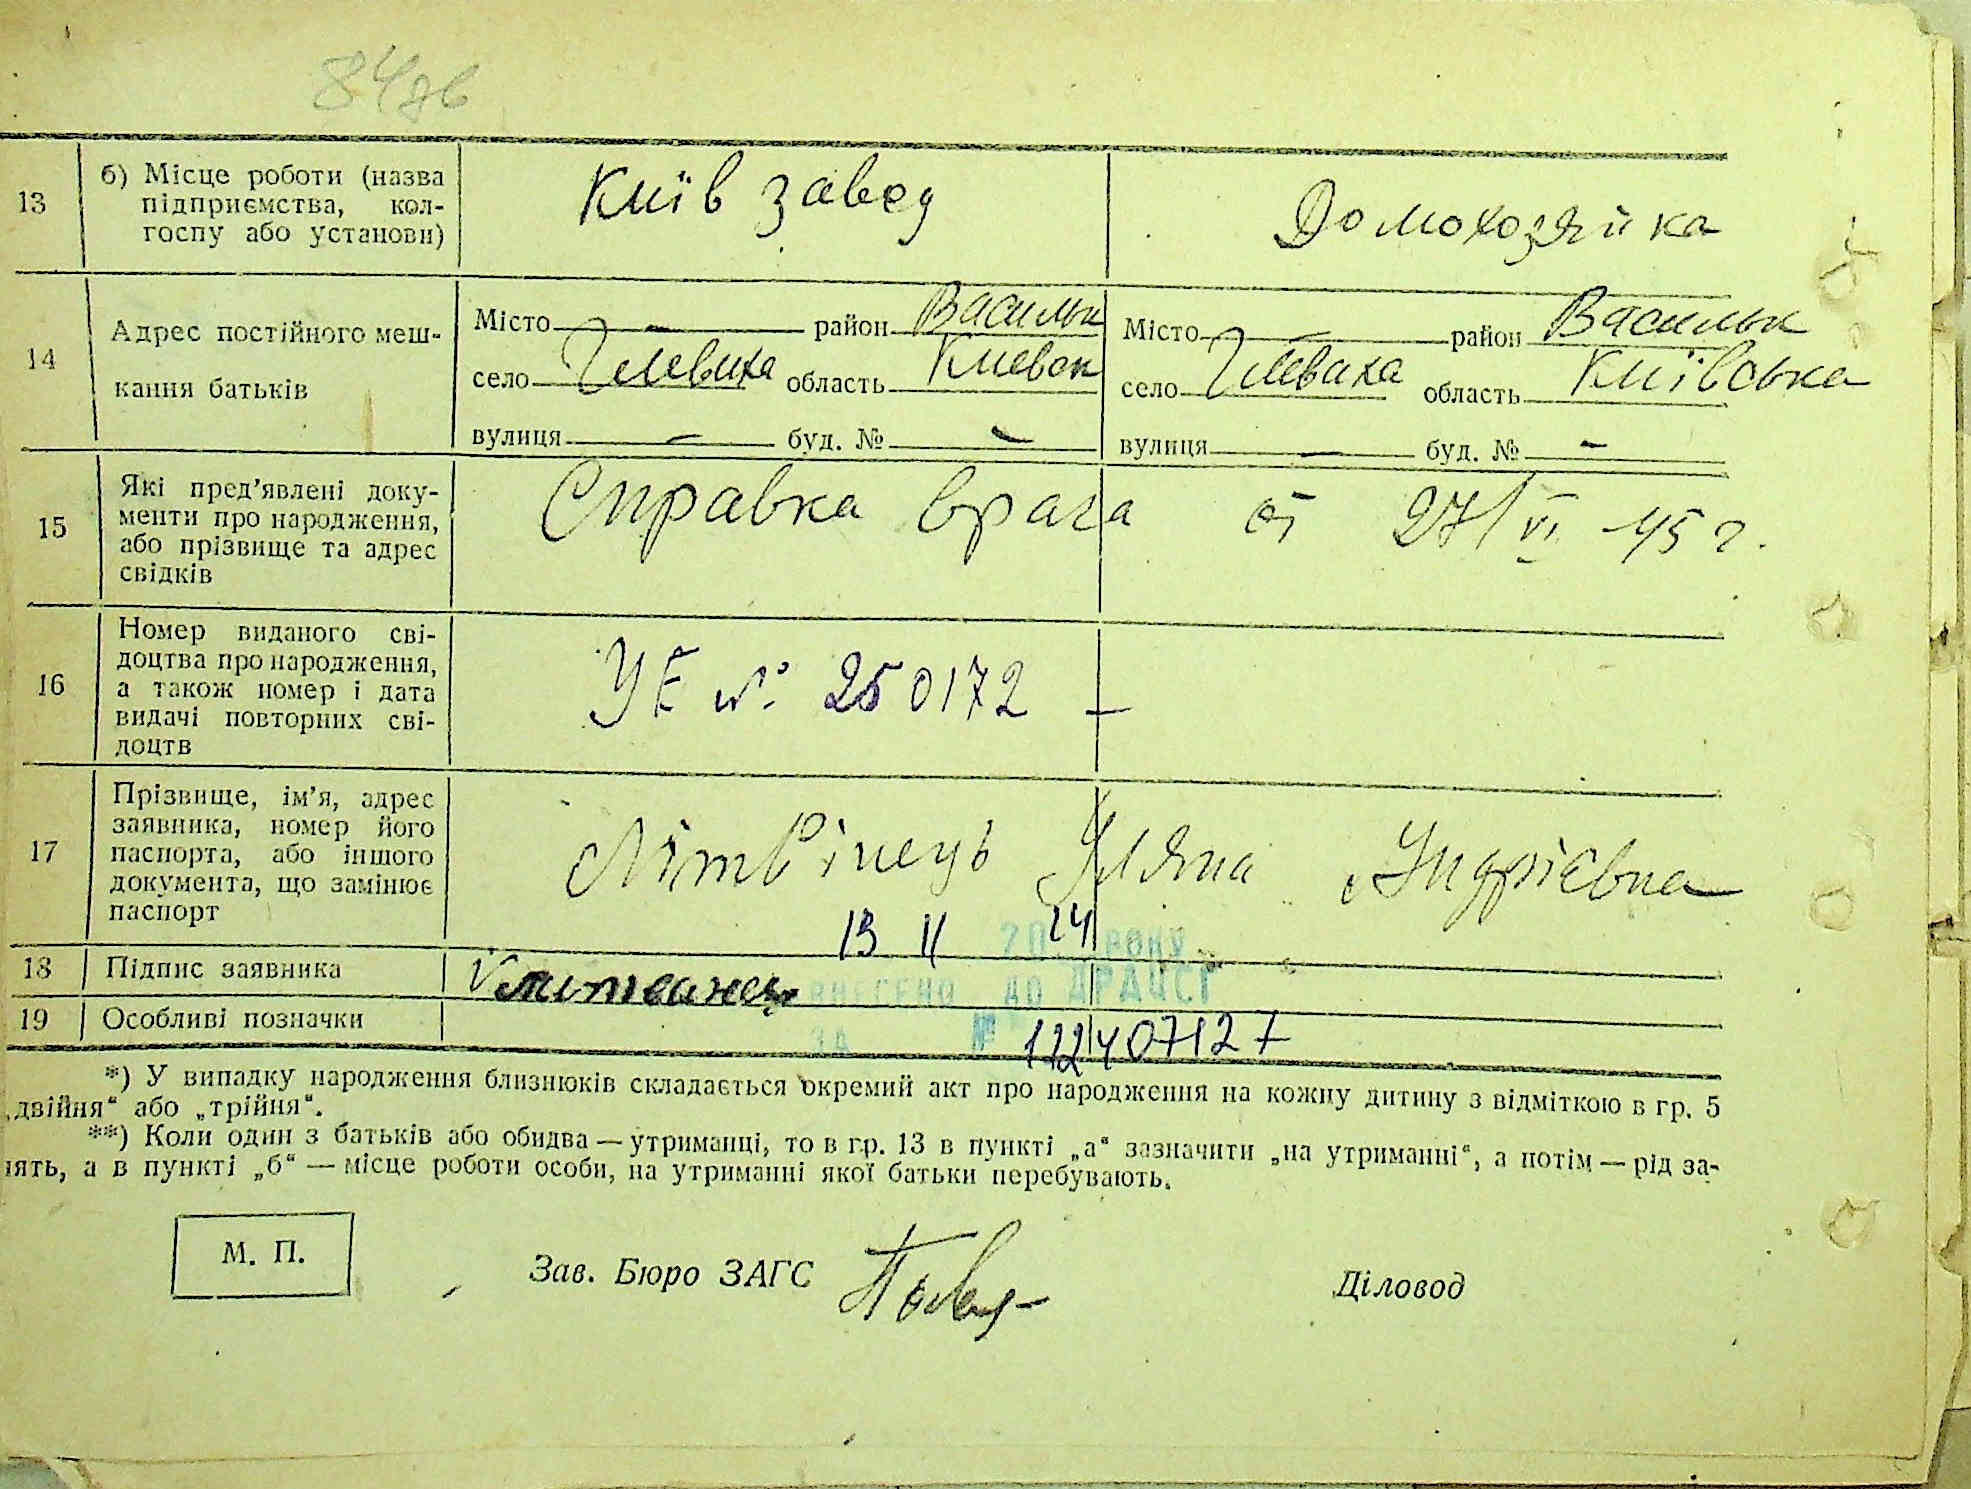 84зв
13
б) Місце роботи (назва
підприємства, кол-
госпу або установи)
Київ завод
Домохозяйка
14
Адрес постійного меш-
кання батьків
Місто — район Васильк
село Глеваха область Киевск
вулиця — буд. № —
Місто — район Васильк
село Глеваха область Київська
вулиця — буд. № —
15
Які пред’явлені доку-
менти про народження,
або прізвище та адрес
свідків
Справка врача от 27/VI 45 г.
16
Номер виданого сві-
доцтва про народження,
а також номер і дата
видачі повторних сві-
доцтв
УЕ № 250172 —
17
Прізвище, ім’я, адрес
заявника, номер його
паспорта, або іншого
документа, що замінює
паспорт
Літвінець Уляна Андріевна
13 11 2014 РОКУ
18
Підпис заявника
Литвинец
ВНЕСЕНО ДО ДРАЦСГ
19
Особливі позначки
ЗА № 122407127
*) У випадку народження близнюків складається окремий акт про народження на кожну дитину з відміткою в гр. 5
„двійня“ або „трійня“.
**) Коли один з батьків або обидва — утриманці, то в гр. 13 в пункті „а“ зазначити „на утриманні“, а потім — рід за-
нять, а в пункті „б“ — місце роботи особи, на утриманні якої батьки перебувають.
М. П.
Зав. Бюро ЗАГС
Діловод